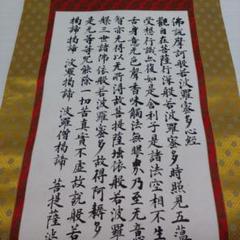 佛説摩訶般若波羅蜜多心經
觀自在菩薩行深般若波羅蜜多時照見五蘊
受想行識亦復如是舍利子是諸法空相不生
舌身意无色聲香味觸法无眼界乃至无意
智亦无得以无所得故菩提薩埵依般若波羅
槃三世諸佛依般若波羅蜜多故得阿耨多
是无等等呪能除一切苦真實不虚故説般若
揭諦揭諦 波羅揭諦 波羅僧揭諦 菩提薩婆